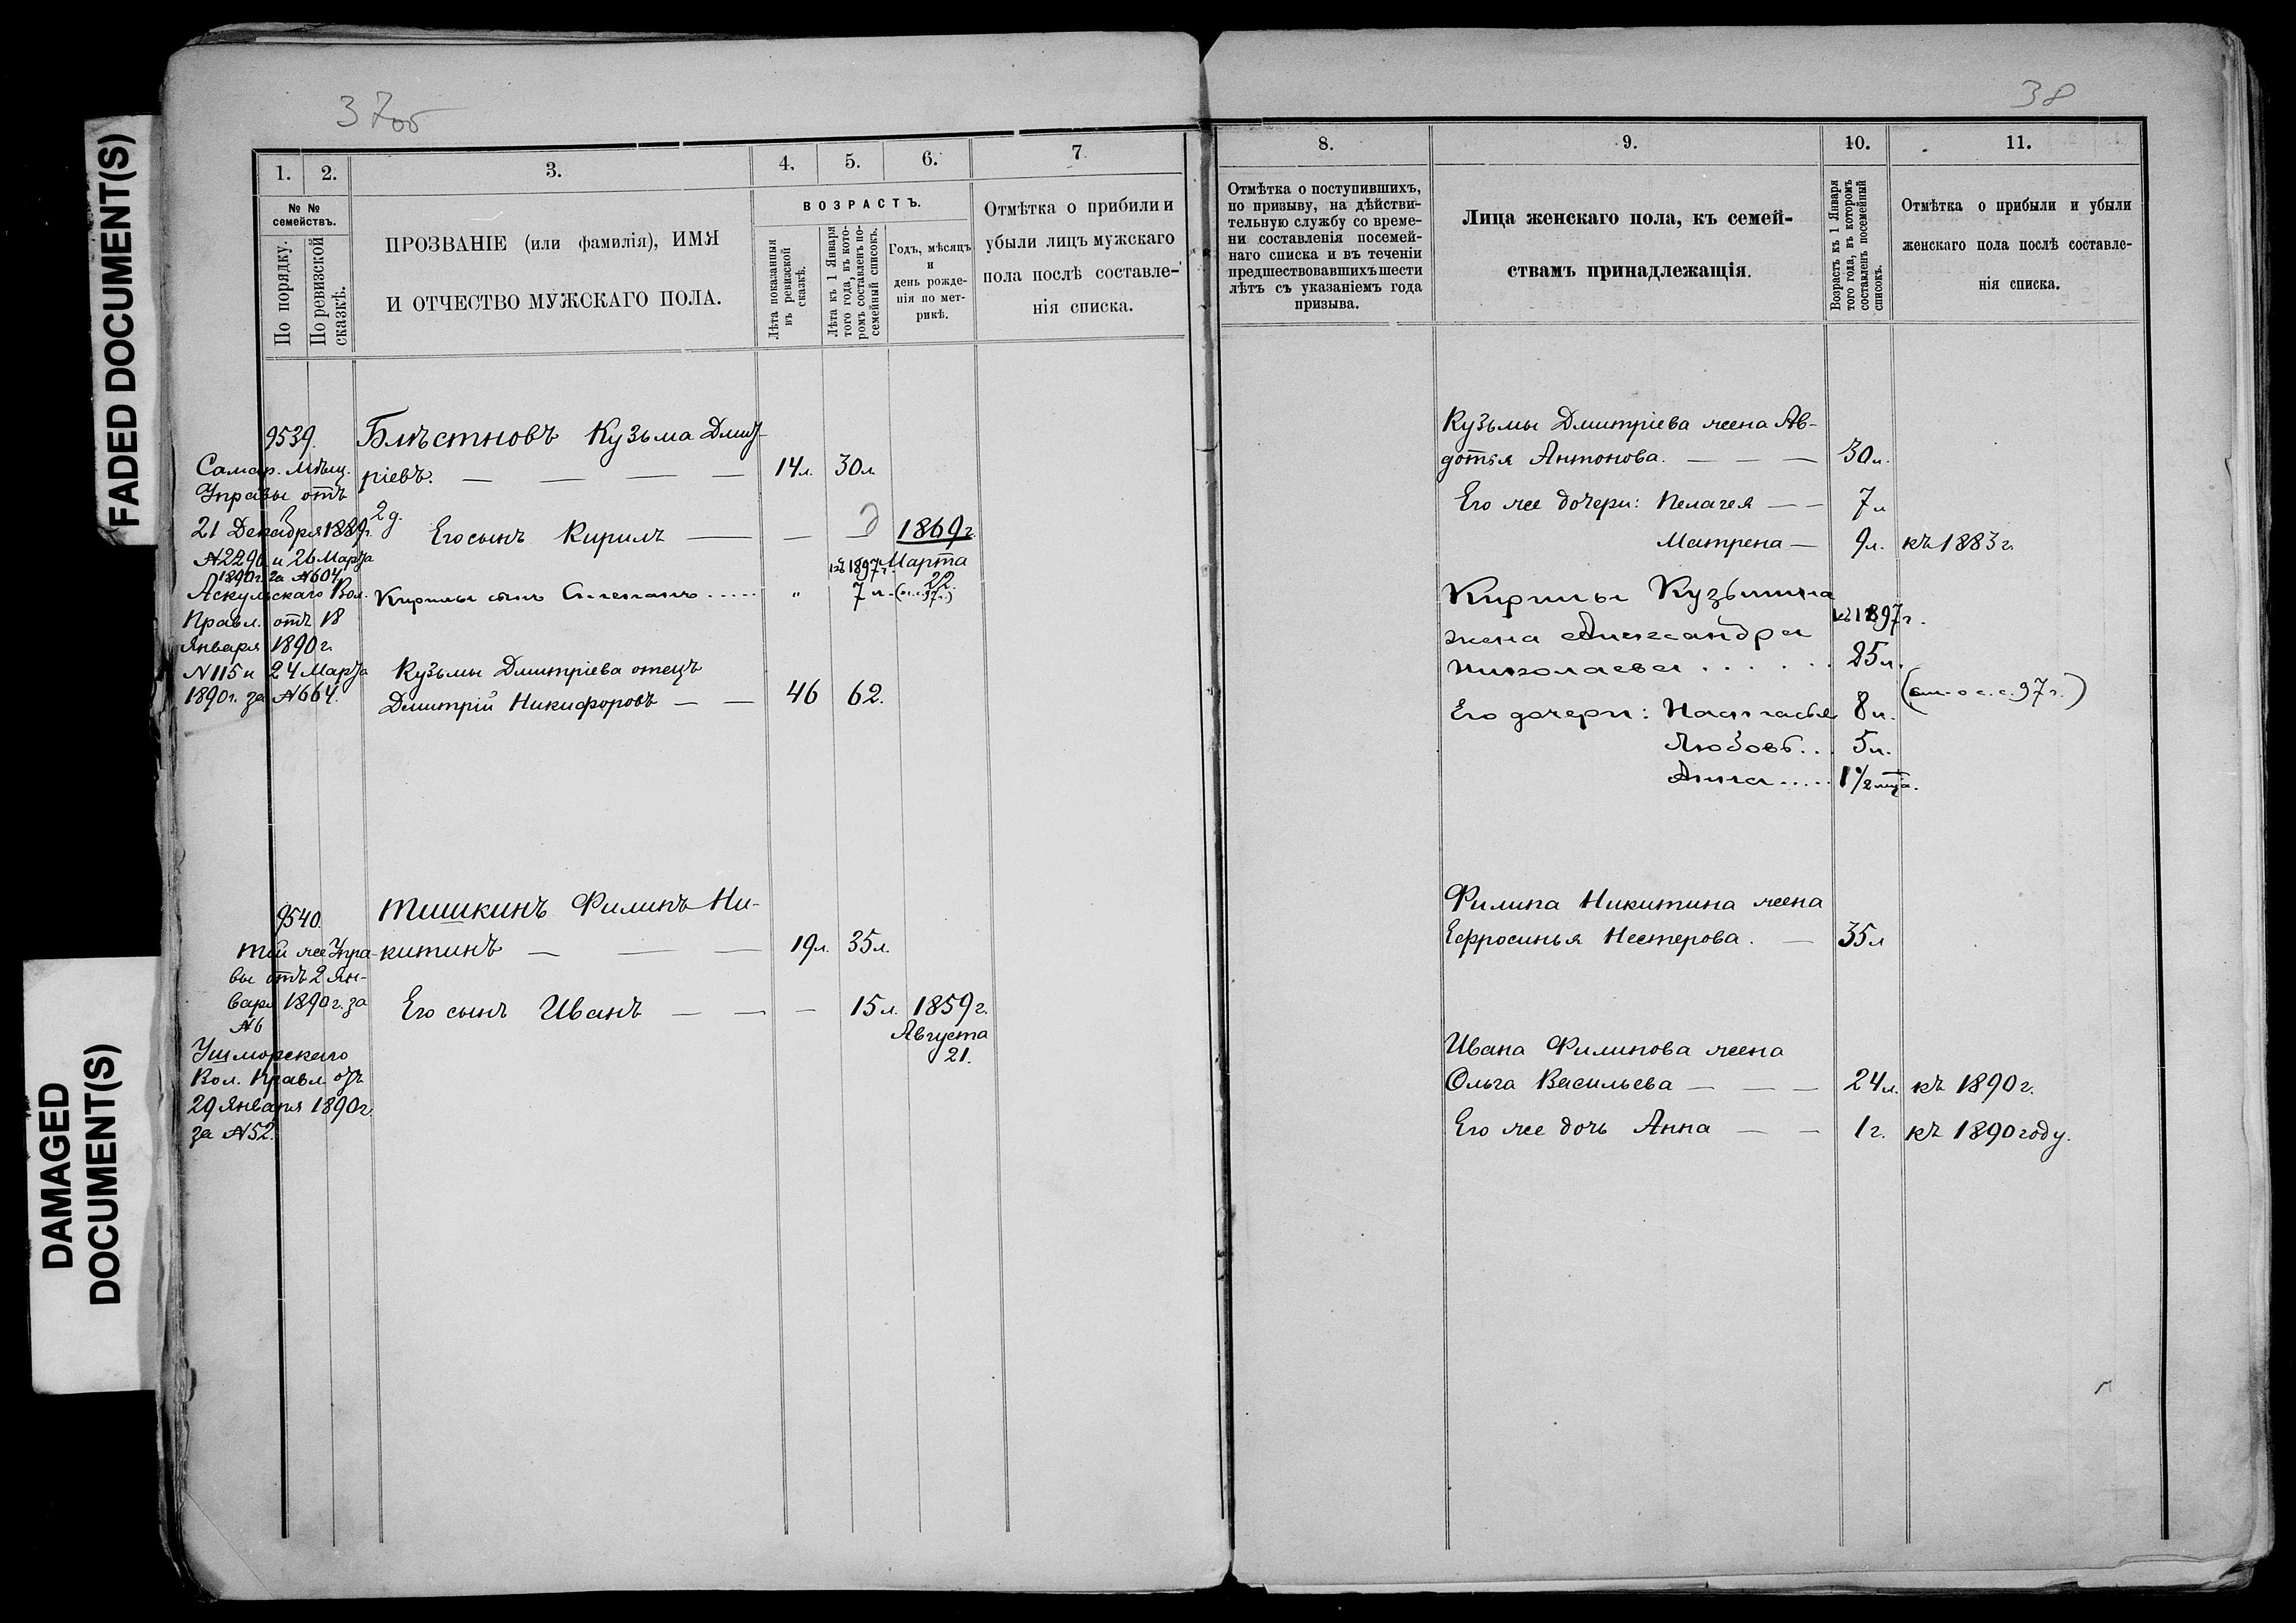 FADED DOCUMENT(S)
DAMAGED
DOCUMENT(S)
37об
1. 2. 3. 4. 5. 6. 7
№ №
семействъ.
По порядку.
По ревизской
сказкѣ.
ПРОЗВАНІЕ (или фамилія), ИМЯ
И ОТЧЕСТВО МУЖСКАГО ПОЛА.
ВОЗРАСТЪ.
Лѣта показанныя
въ ревизской
сказкѣ.
Лѣта къ 1 Января
того года, въ кото-
ромъ составленъ по-
семейный списокъ.
Годъ, мѣсяцъ
и
день рожде-
нія по мет-
рикѣ.
Отмѣтка о прибили и
убыли лицъ мужскаго
пола послѣ составле-
нія списка.
9539.
Самар. Мѣщ.
Управы отъ
21 Декабря 1889г.
№2296 и 26 Марта
1890г. за №604
Аскульскаго Вол.
Правл. отъ 18
Января 1890г.
№115 и 24 Марта
1890г. за №664.
Блѣстновъ Кузьма Дмит-
ріевъ. — — — — 14л. 30л
2д. Его сынъ Кирилъ — — — 1869г.
Марта
22.
къ 1897г.
Кирилы сынъ Степанъ ..... " 7 л.
Кузьмы Дмитріева отецъ
Дмитрій Никифоровъ — — 46 62.
9540.
той же Упра-
вы отъ 2 Ян-
варя 1890г. за
№6
Ушморскаго
Вол. Правл. отъ
29 Января 1890г.
за №52.
Тишкинъ Филипъ Ни-
китинъ — — — 19л. 35л.
Его сынъ Иванъ — — — 15л. 1859г.
Августа
21.
38
8. 9. 10. 11.
Отмѣтка о поступившихъ,
по призыву, на дѣйстви-
тельную службу со време-
ни составленія посемей-
наго списка и въ теченіи
предшествовавшихъ шести
лѣтъ съ указаніемъ года
призыва.
Лица женскаго пола, къ семей-
ствамъ принадлежащія.
Возрастъ къ 1 Января
того года, въ которомъ
составленъ посемейный
списокъ.
Отмѣтка о прибыли и убыли
женскаго пола послѣ составле-
нія списка.
Кузьмы Дмитріева жена Ав-
дотья Антонова. — — — 30л.
Его же дочери: Пелагея — — 7л
Матрена — 9л. къ 1883г.
Кирилы Кузьмина
къ 1897г.
жена Александра
Николаева . . . . . . 25л.
Его дочери: Настасья 8л.
Любовь... 5л.
Анна..... 1 1/2 мѣца.
Филипа Никитина жена
Ефросинья Нестерова. — 35л
Ивана Филипова жена
Ольга Васильева — — — 24л. къ 1890г.
Его же дочь Анна — — 1г. къ 1890 году.